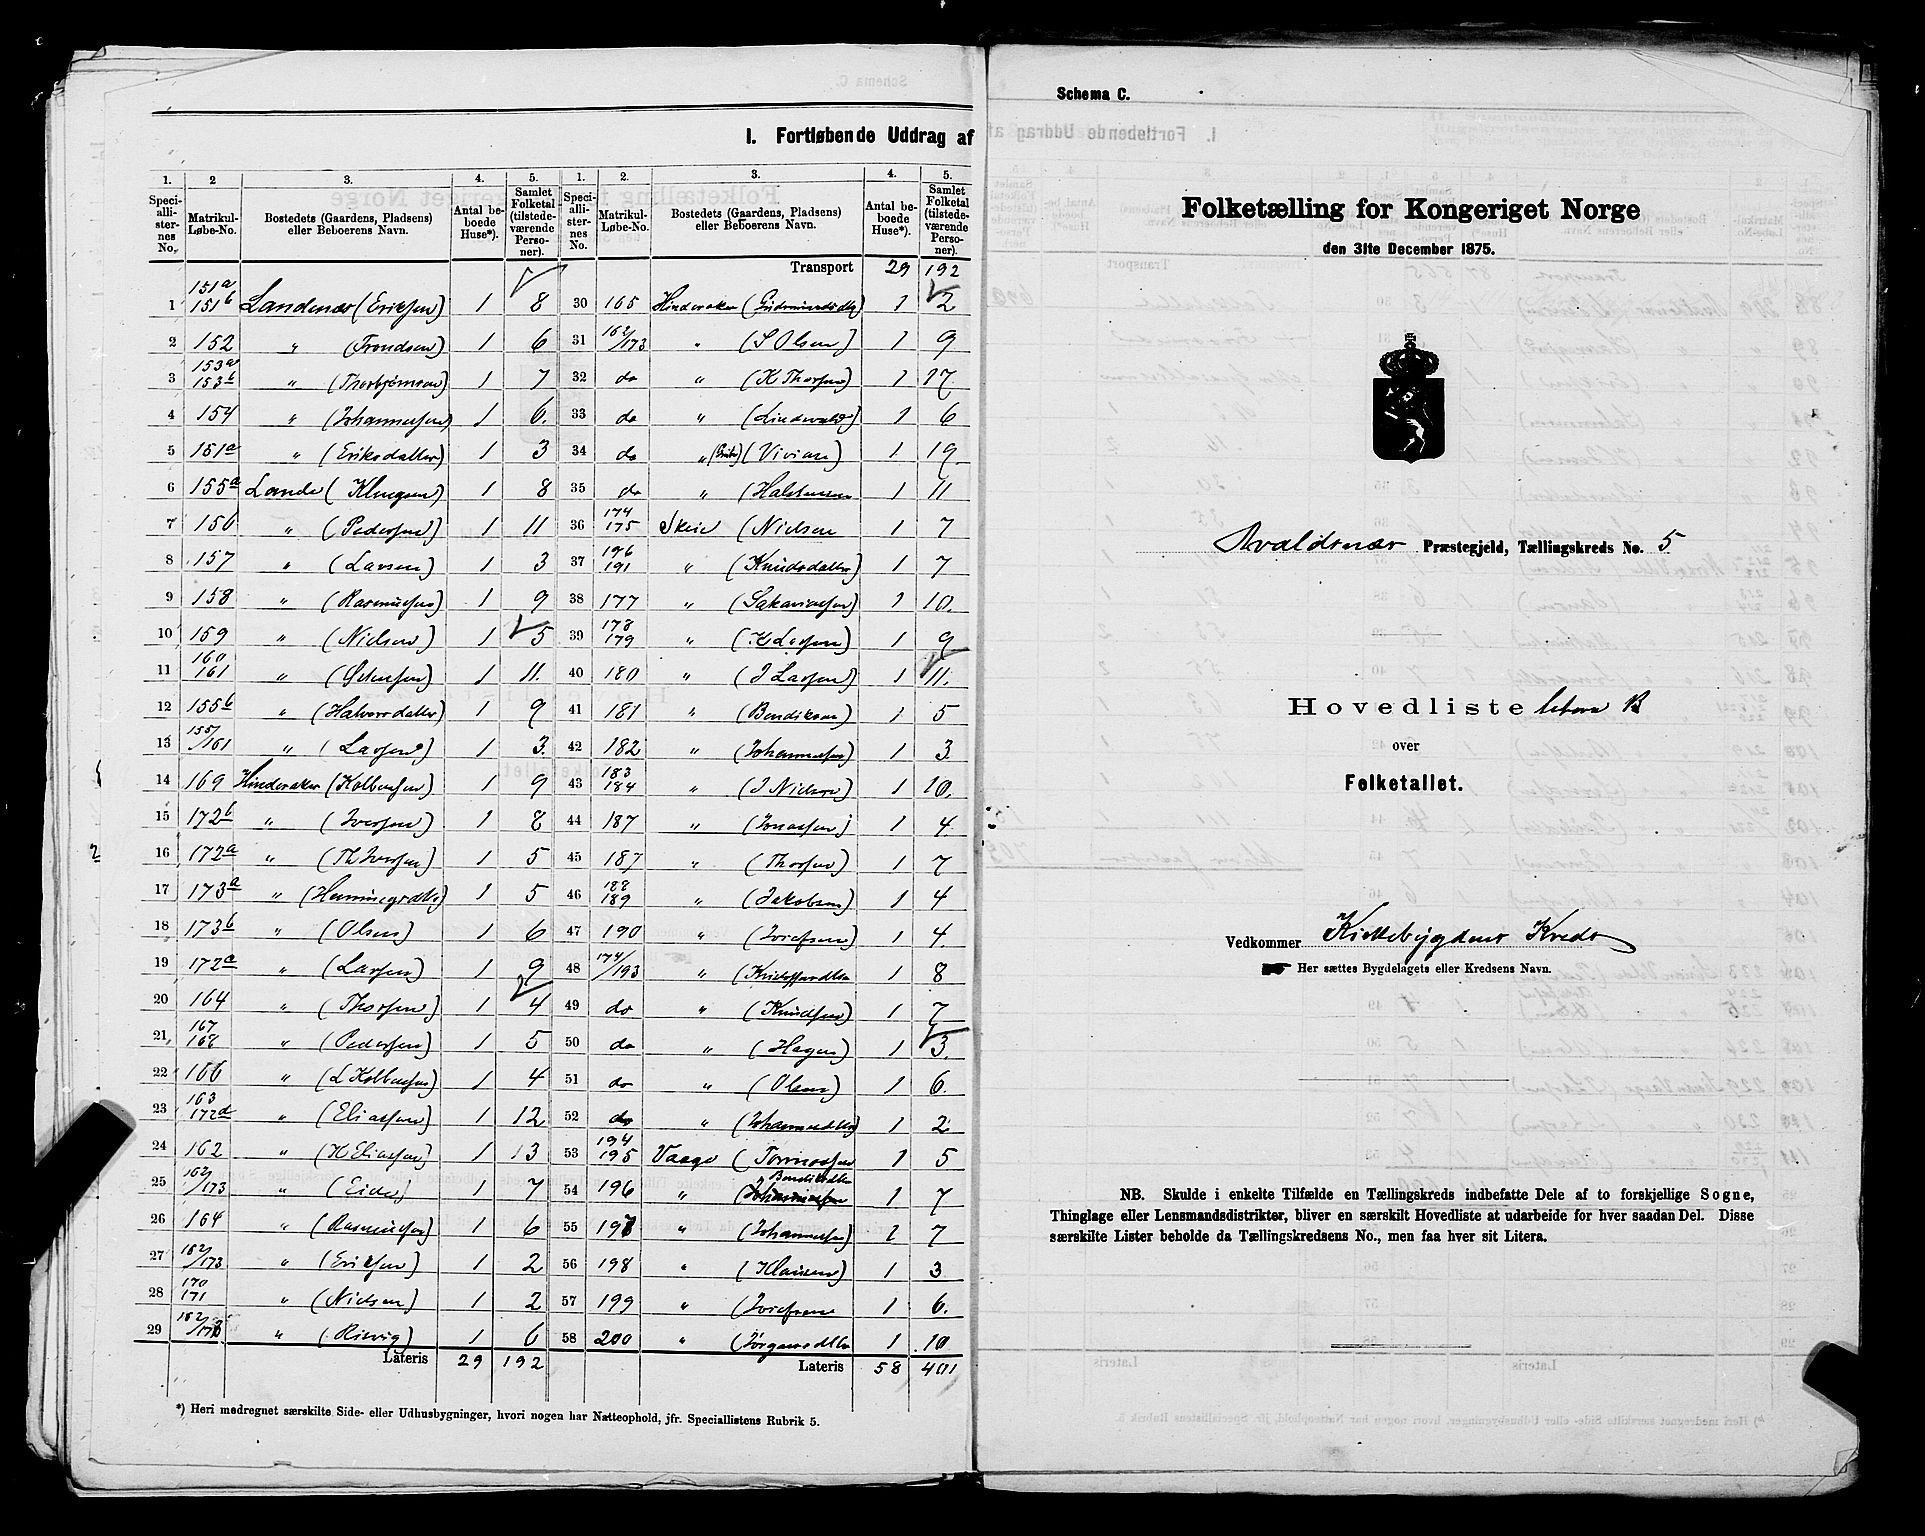 I. Fortløbende Uddrag af
1. 2 3. 4. 5.
Speciallisternes No. Matrikul-Løbe-No. Bostedets (Gaardens, Pladsens) eller Beboerens Navn. Antal beboede Huse*). Samlet Folketal (tilstedeværende Personer).
1 151a 151b Landenær (Eriksen) 1 8
2 152 " (Trondsen) 1 6
3 153a 153b " (Thorbjørnsen) 1 7
4 154 " (Johannessen) 1 6.
5 151a " (Eriksdatter) 1 3
6 155a Lande (Klungsen) 1 8
7 156 " (Pedersen) 1 11
8 157 " (Larsen) 1 3
9 158 " (Rasmussen) 1 9
10 159 " (Nielsen) 1 5
11 160 161 " 1 11.
12 155b " (Halvorsdatter) 1 9
13 155/161 " (Larsen) 1 3.
14 169 Hinderaker (Kolbensen) 1 9
15 172b " (Iversen) 1 8
16 172a " (Th Iversen) 1 5
17 173a " 1 5
18 173b " (Olsen) 1 6
19 172a " (Larsen) 1 9
20 164 " (Thorsen) 1 4
21 167 168 " (Pedersen) 1 5
22 166 " (L Kolbensen) 1 4
23 163 172d " (Eliassen) 1 12
24 162 " (K Eliassen) 1 13
25 162/173 " (Eide) 1 7
26 164 " (Rasmussen) 1 6
27 162/173 " (Eriksen) 1 2
28 170 171 " (Nielsen) 1 2
29 162/173 " 1 6
Lateris 29 192
1. 2. 3. 4. 5.
Speciallisternes No. Matrikul-Løbe-No. Bostedets (Gaardens, Pladsens) eller Beboerens Navn. Antal beboede Huse*). Samlet Folketal (tilstedeværende Personer).
Transport 29 192
30 165 Hinderaker 1 2
31 162/173 " (S Olsen) 1 9
32 do " (K Thorsen) 1 17.
33 do " 1 6
34 do " (Vivian) 1 19
35 do " (Halstensen 1 11
36 174 175 Skeie (Nielsen 1 7
37 196 191 " (Knudsdatter) 1 7
38 177 " (Sakariassen) 1 10.
39 178 179 " (K Larsen) 1 9
40 180 " (J Larsen) 1 11.
41 181 " (Bendiksen) 1 5
42 182 " (Johannessen) 1 3.
43 183 184 " (J Nielsen) 1 10.
44 187 " (Jonassen) 1 4.
45 187 " (Thorsen) 1 7
46 188 189 " (Jakobsen) 1 4
47 190 " 1 4.
48 174/193 " 1 8
49 do " (Knudsen) 1 7
50 do " (Hagen) 1 3.
51 do " (Olsen) 1 6.
52 do " 1 2
53 194 195 Vaage 1 5
54 196 " 1 7
55 197 " (Johannessen) 1 7
56 198 " (Klausen) 1 3
57 199 " 1 6.
58 200 " 1 10
Lateris 58 401
*) Heri medregnet særskilte Side- eller Udhusbygninger, hvori nogen har Natteophold, jfr. Speciallistens Rubrik 5.
Schema C.
Folketælling for Kongeriget Norge
den 31te December 1875.
Avaldsnær Præstegjeld, Tællingskreds No. 5
Hovedliste litera B
over
Folketallet.
Vedkommer Kirkebygdens Kreds
Her sættes Bygdelagets eller Kredsens Navn.
NB. Skulde i enkelte Tilfælde en Tællingskreds indbefatte Dele af to forskjellige Sogne,
Thinglage eller Lensmandsdistrikter, bliver en særskilt Hovedliste at udarbeide for hver saadan Del. Disse
særskilte Lister beholde da Tællingskredsens No., men faa hver sit Litera.